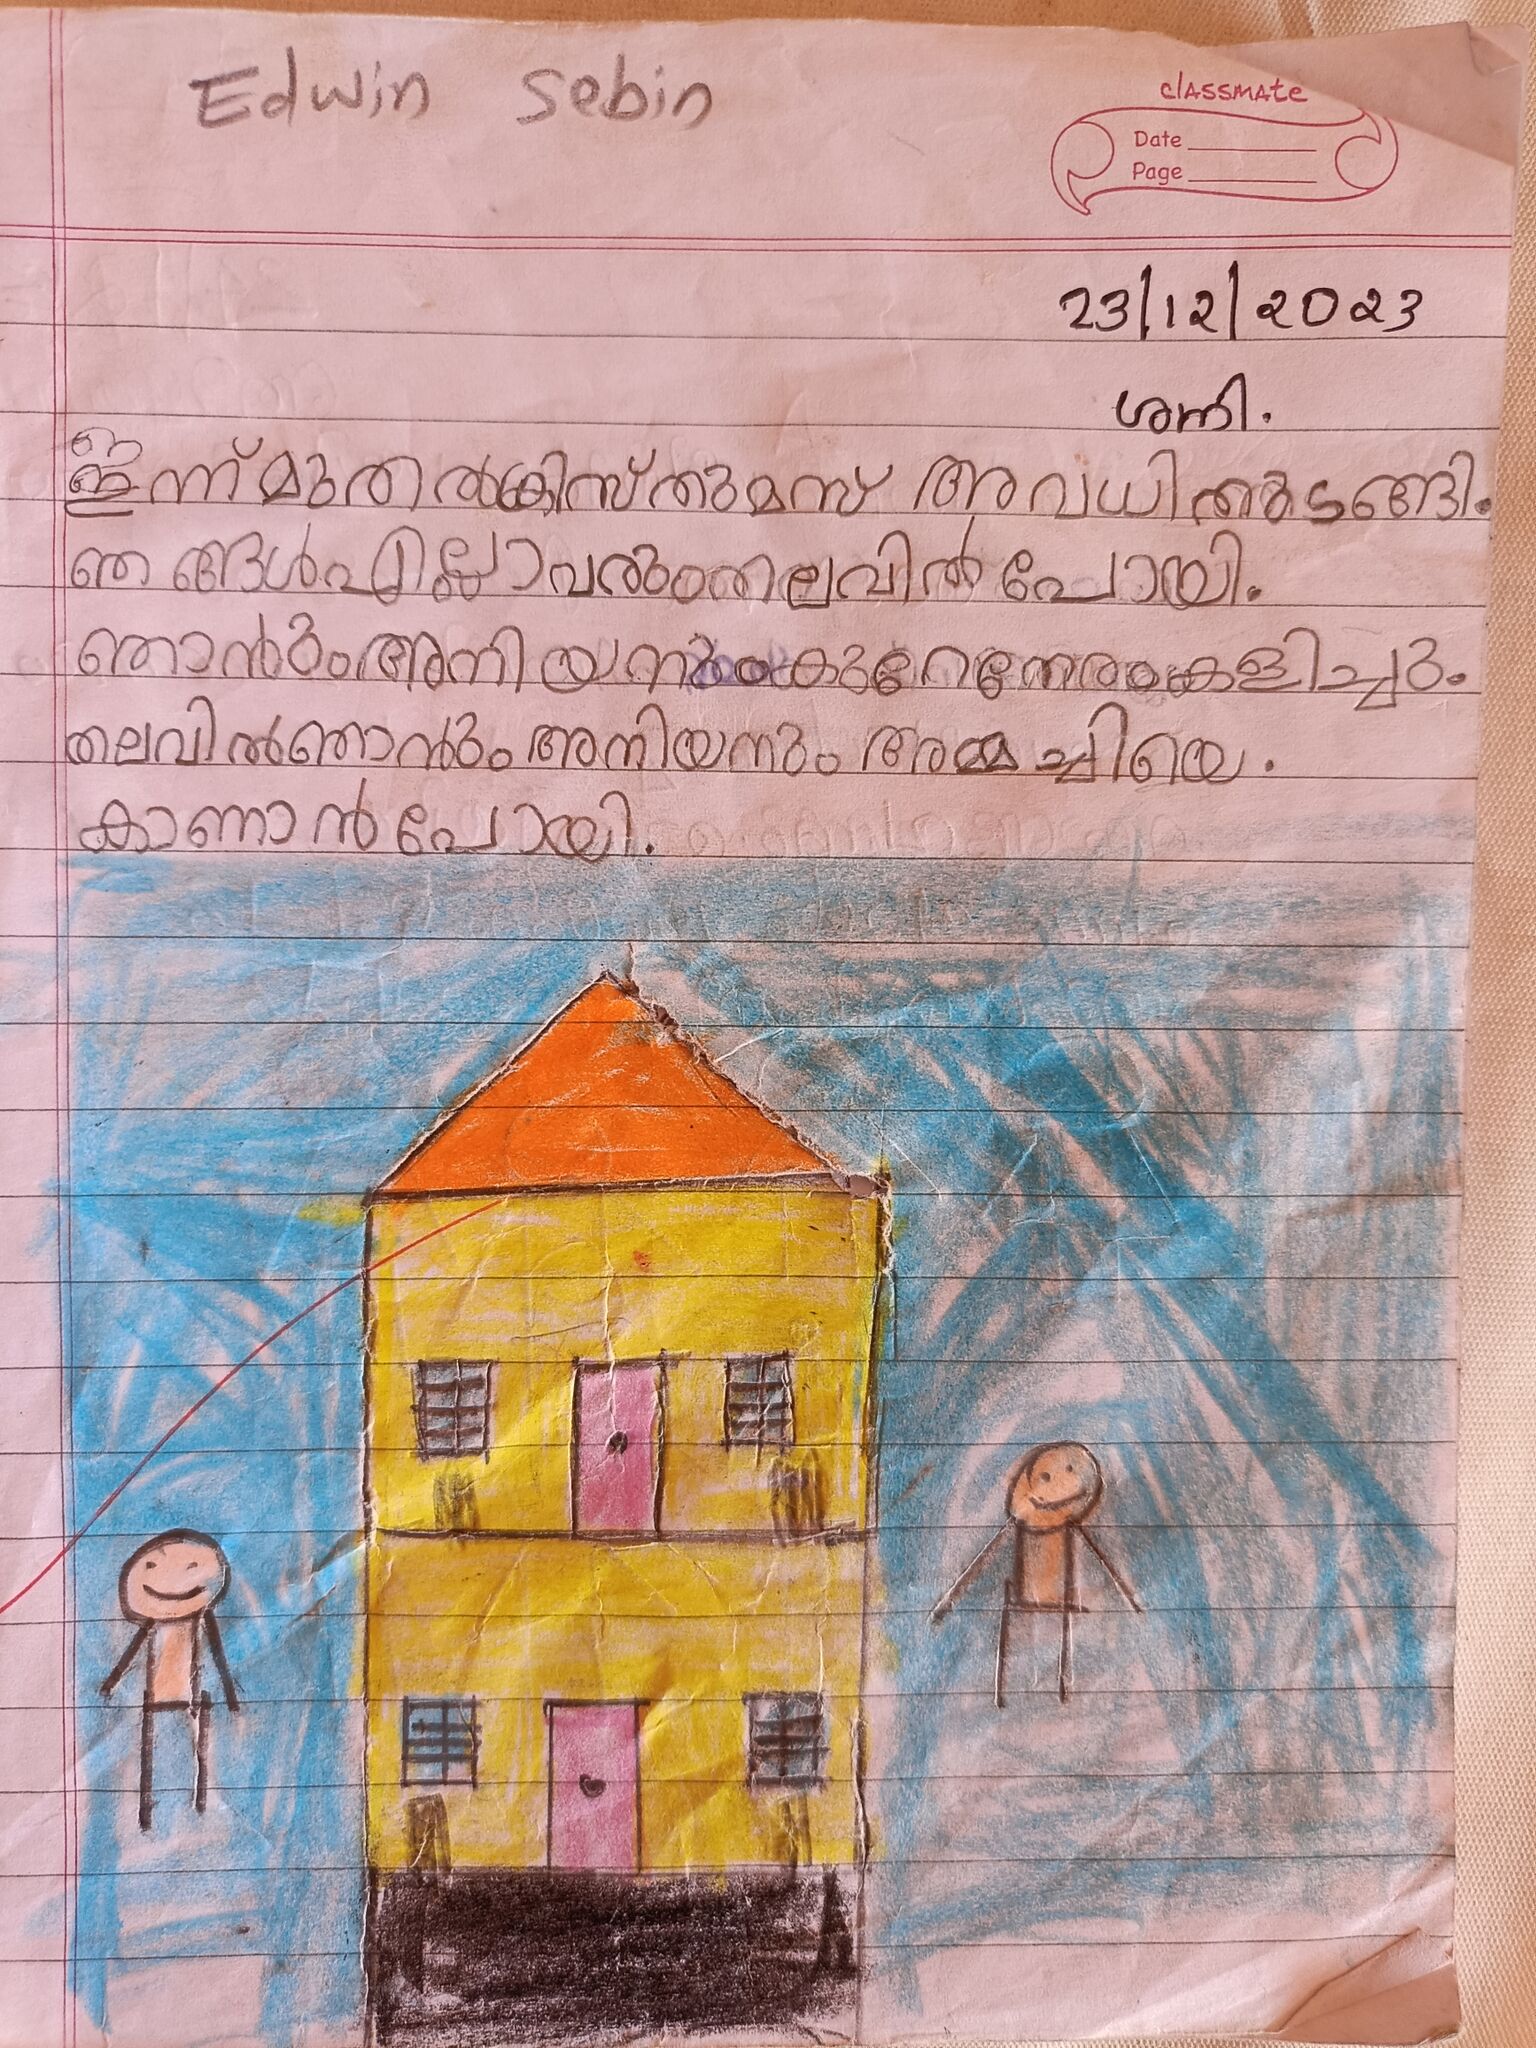 Edwin Sebin
classmate
Date
Page
23/12/2023
ശനി.
ഇന്ന് മുതൽ ക്രിസ്തുമസ് അവധി തുടങ്ങി.
ഞങ്ങൾ എല്ലാവരും തലവിൽ പോയി.
ഞാൻും അനിയനും കുറേനേരം കളിച്ചു.
തലവിൽ ഞാൻും അനിയനും അമ്മച്ചിയെ.
കാണാൻ പോയി.